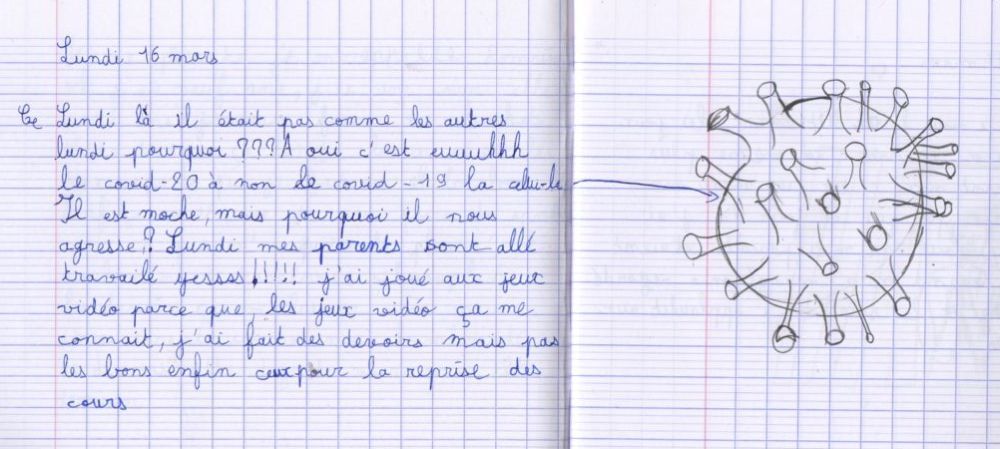 Lundi 16 mars
Ce Lundi là il était pas comme les autres
lundi pourquoi ??? A oui c'est euuuuhhh
le covid-20 à non le covid-19 la celui-là
Il est moche, mais pourquoi il nous
agresse? Lundi mes parents sont allé
travailé yessss!!!!! j'ai joué aux jeux
vidéo parce que les jeux vidéo ça me
connait, j'ai fait des devoirs mais pas
les bons enfin ceux pour la reprise des
cours